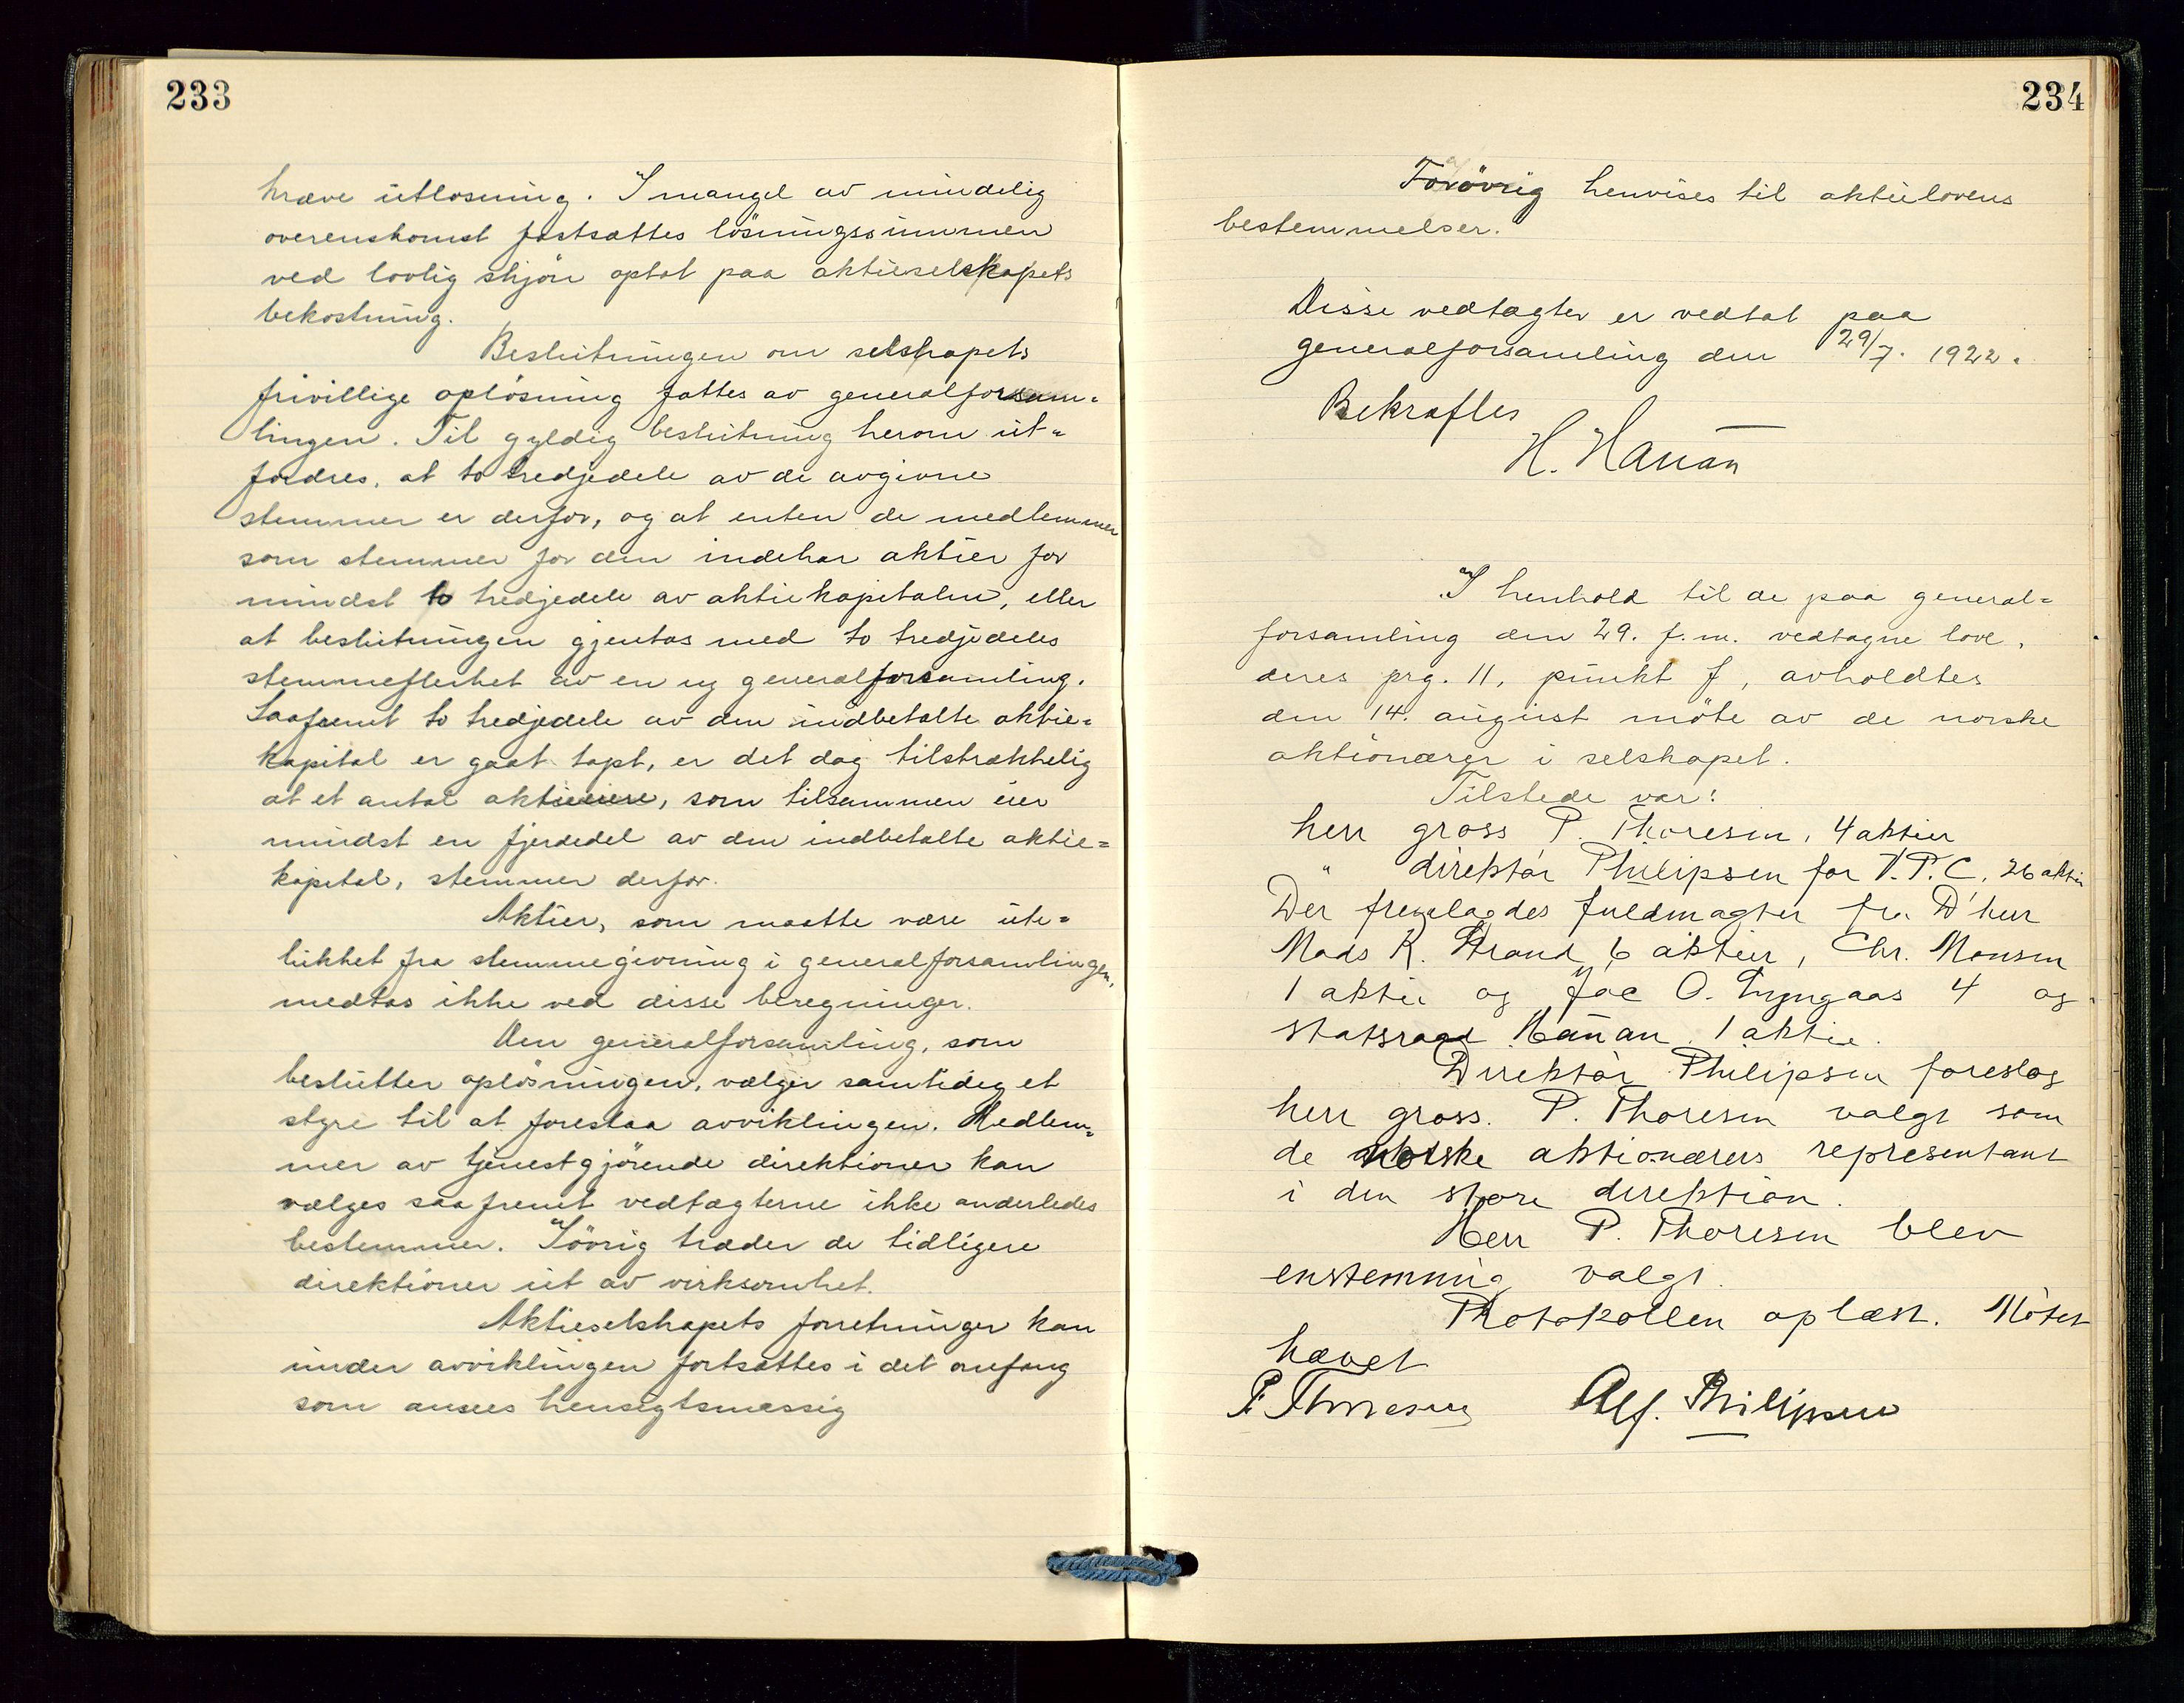 233
kræve utløsning. I mangel av mindelig
overenskomst fastsættes lösningssummen
ved lovlig skjön optat paa aktieselskapets
bekostning.
Beslutningen om selskapets
frivillige oplösning fattes av generalforsam=
lingen. Til gyldig beslutning herom ut=
fordres, at to tredjedele av de avgivne
stemmer er derfor, og at enten de medlemmer
som stemmer for den indehar aktier for
mindst to tredjedele av aktiekapitalen, eller
at beslutningen gjentas med to tredjedeles
stemmeflerhet av en ny generalforsamling.
Saafremt to tredjedele av den indbetalte aktie=
kapital er gaat tapt, er det dog tilstrækkelig
at et antal aktieeiere, som tilsammen eier
mindst en fjerdedel av den indbetalte aktie=
kapital, stemmer derfor.
Aktier, som maatte være ute=
lukket fra stemmegivning i generalforsamlingen,
medtas ikke ved disse beregninger.
Den generalforsamling, som
beslutter oplösningen, vælger samtidig et
styre til at forestaa avviklingen. Medlem=
mer av tjenestgjörende direktioner kan
vælges saafremt vedtægterne ikke anderledes
bestemmer. Iövrig træder de tidligere
direktioner ut av virksomhet.
Aktieselskapets forretninger kan
under avviklingen fortsættes i det omfang
som ansees hensigtsmæssig
234
Forövrig henvises til aktielovens
bestemmelser.
Disse vedtægter er vedtat paa
generalforsamling den 29/7. 1922.
Bekræftes
H. Hauan
I henhold til de paa general=
forsamling den 29. f.m. vedtagne love,
deres prg. 11, punkt f, avholdtes
den 14. august möte av de norske
aktionærer i selskapet.
Tilstede var:
herr gross P. Thoresen, 4 aktier
" direktör Philipsen for V.P.C. 26 aktier
Der fremlagdes fuldmagter fra D'herr
Mads K. Strand 6 aktier, Chr. Monsen
1 aktie og Jac O. Lyngaas 4 og
statsraad Hauan 1 aktie.
Direktör Philipsen foreslog
herr gross. P. Thoresen valgt som
de norske aktionærers representant
i den store direktion.
Herr P. Thoresen blev
enstemmig valgt.
Protokollen oplæst. Mötet
hævet
P. Thoresen Alf. Philipsen